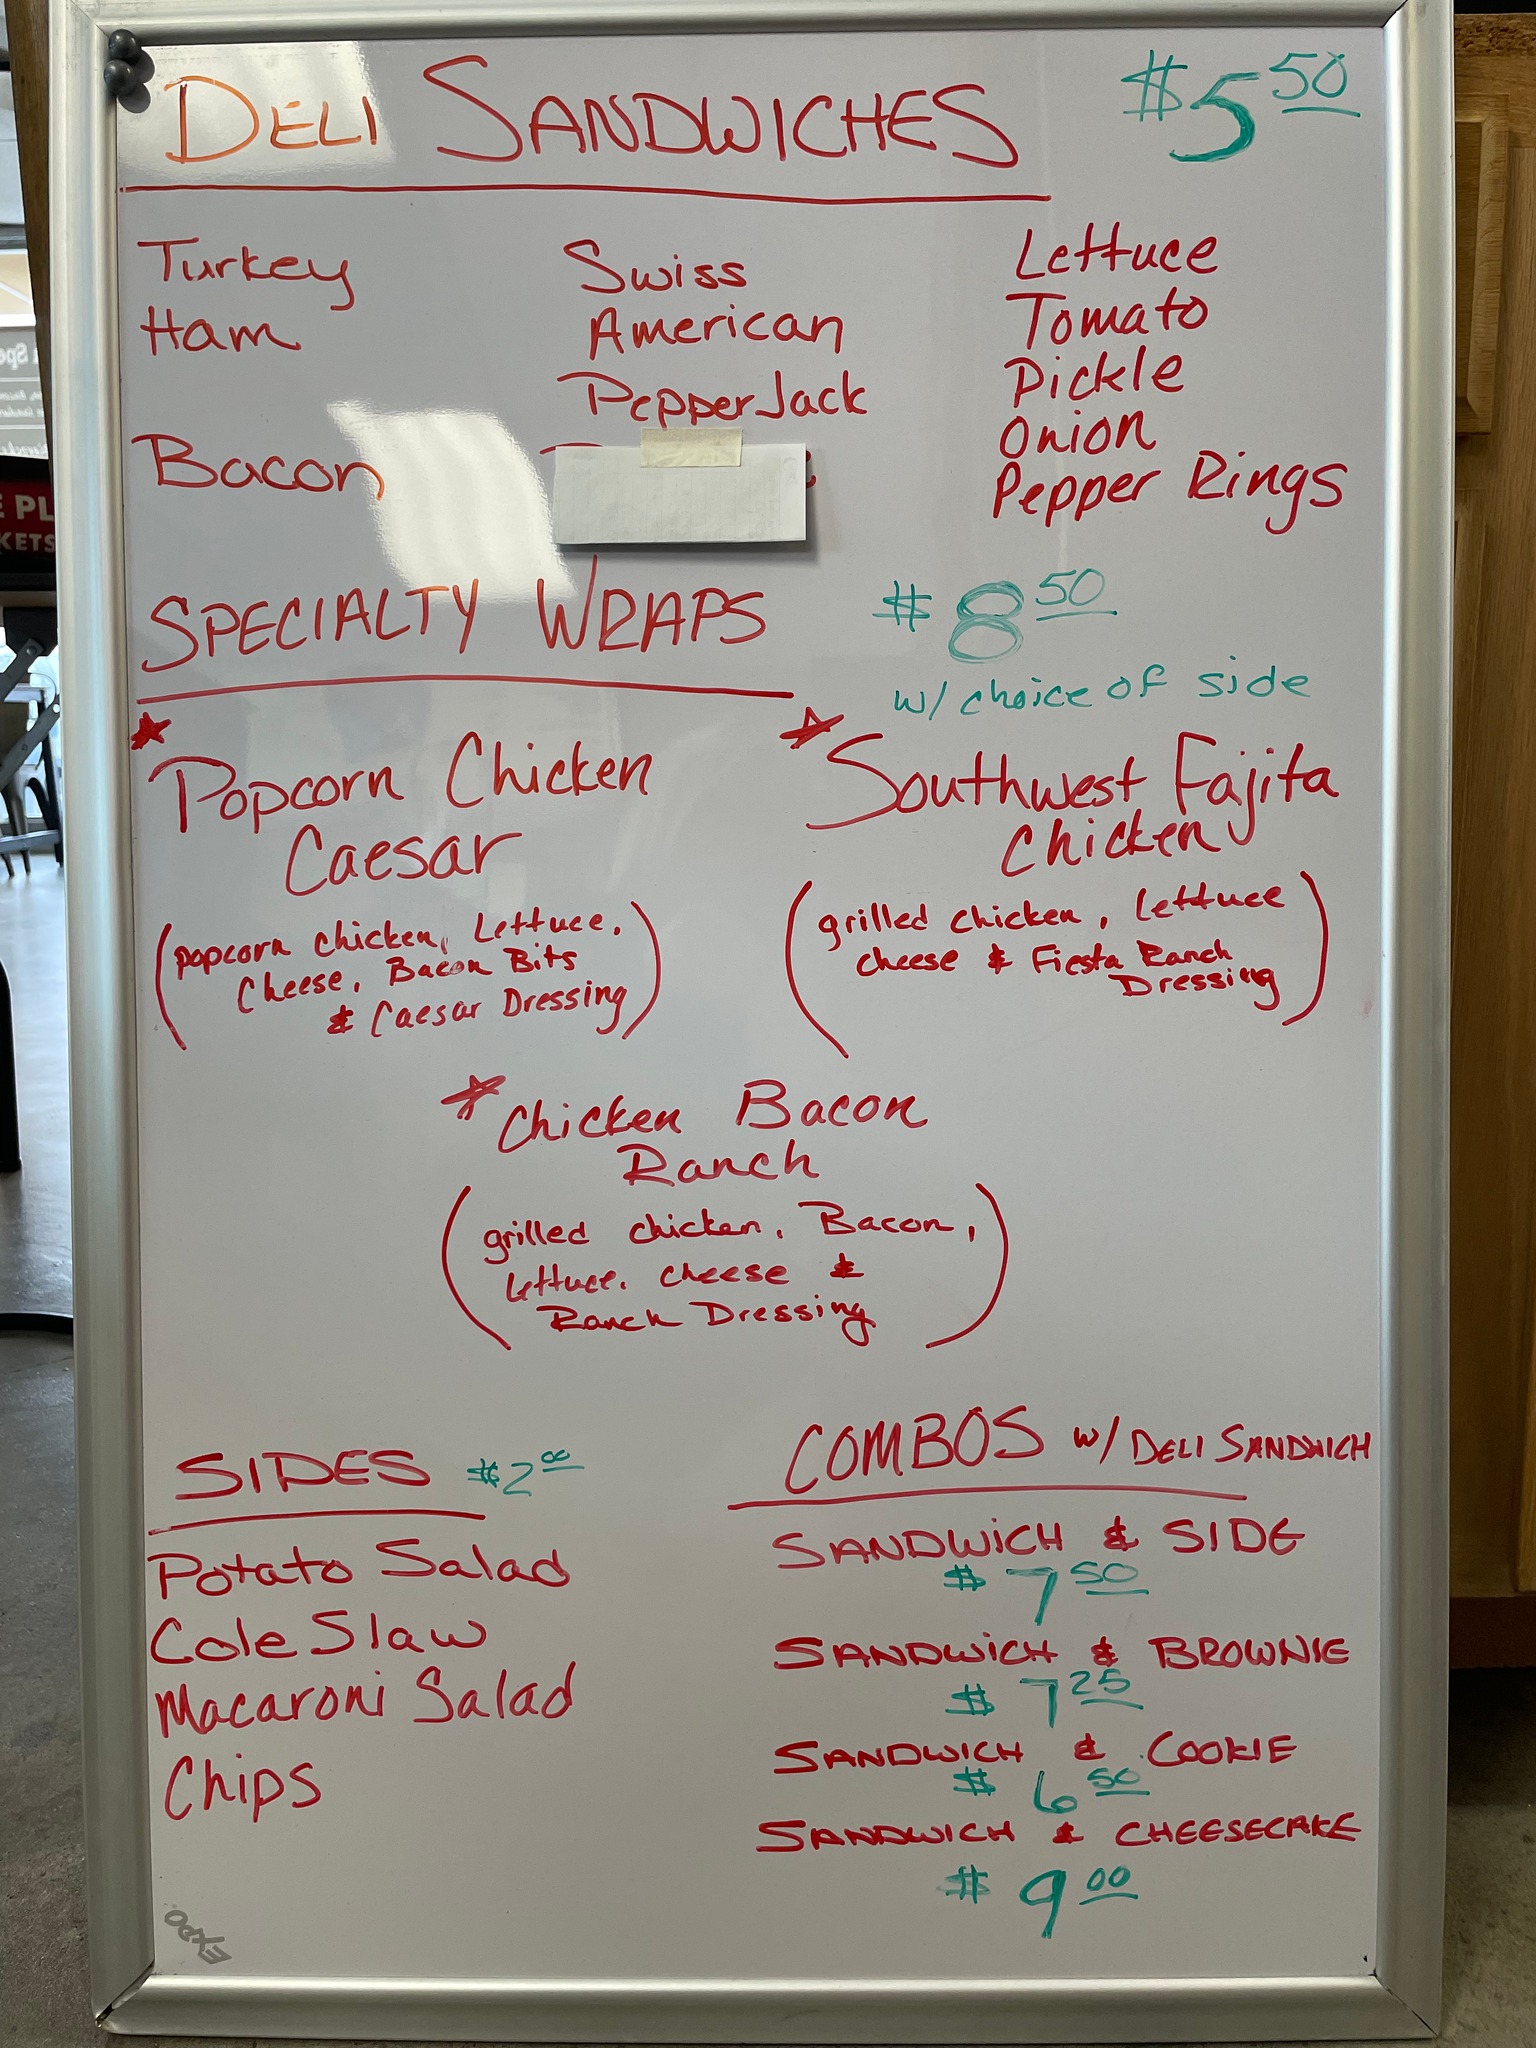 DELI SANDWICHES $5.50
Turkey
Ham
Bacon
Swiss
American
Pepper Jack
Lettuce
Tomato
Pickle
Onion
Pepper Rings
SPECIALTY WRAPS $8.50
w/ choice of side
Popcorn Chicken
Caesar
(popcorn chicken, Lettuce,
Cheese, Bacon Bits
& Caesar Dressing)
Southwest Fajita
Chicken
(grilled chicken, Lettuce
cheese & Fiesta Ranch
Dressing)
Chicken Bacon
Ranch
(grilled chicken, Bacon,
lettuce, cheese &
Ranch Dressing)
SIDES $2.00
Potato Salad
Cole Slaw
Macaroni Salad
Chips
COMBOS w/ DELI SANDWICH
SANDWICH & SIDE
$7.50
SANDWICH & BROWNIE
$7.25
SANDWICH & COOKIE
$6.50
SANDWICH & CHEESECAKE
$9.00
EXPO
E PL
KETS